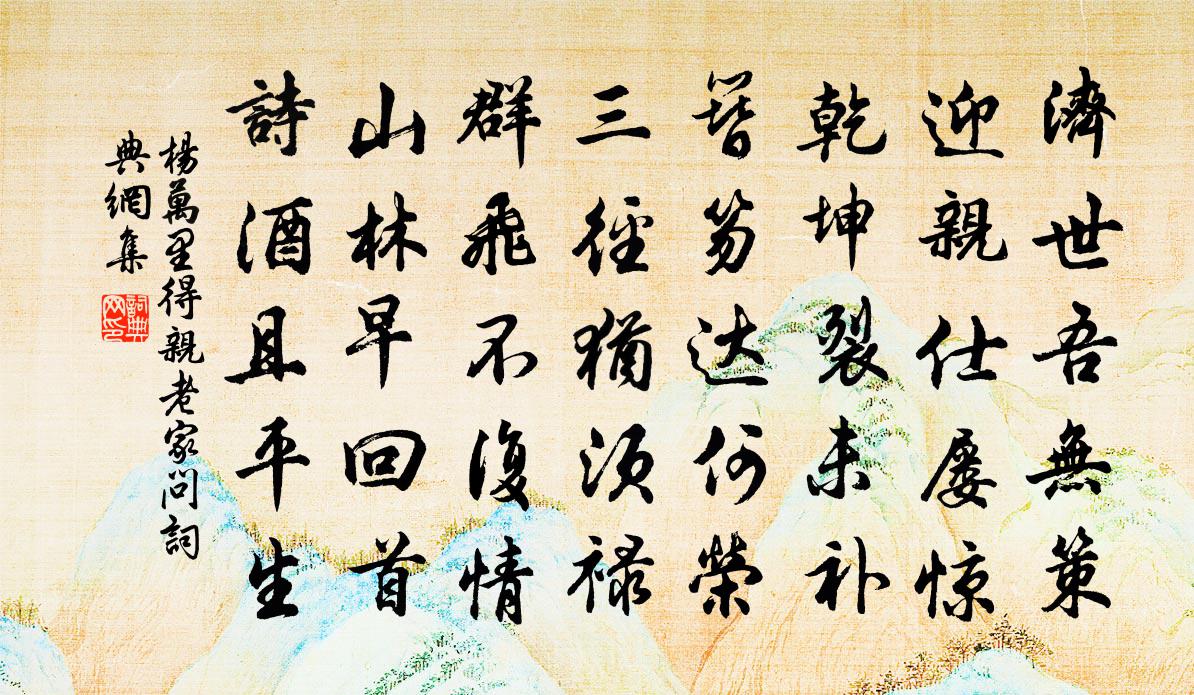 濟世吾無策
迎親仕屡惊
乾坤裂未补
簪笏达何榮
三徑猶須禄
群飛不復情
山林早回首
詩酒且平生
楊萬里得親老家問詞
典網集
詞典
网印